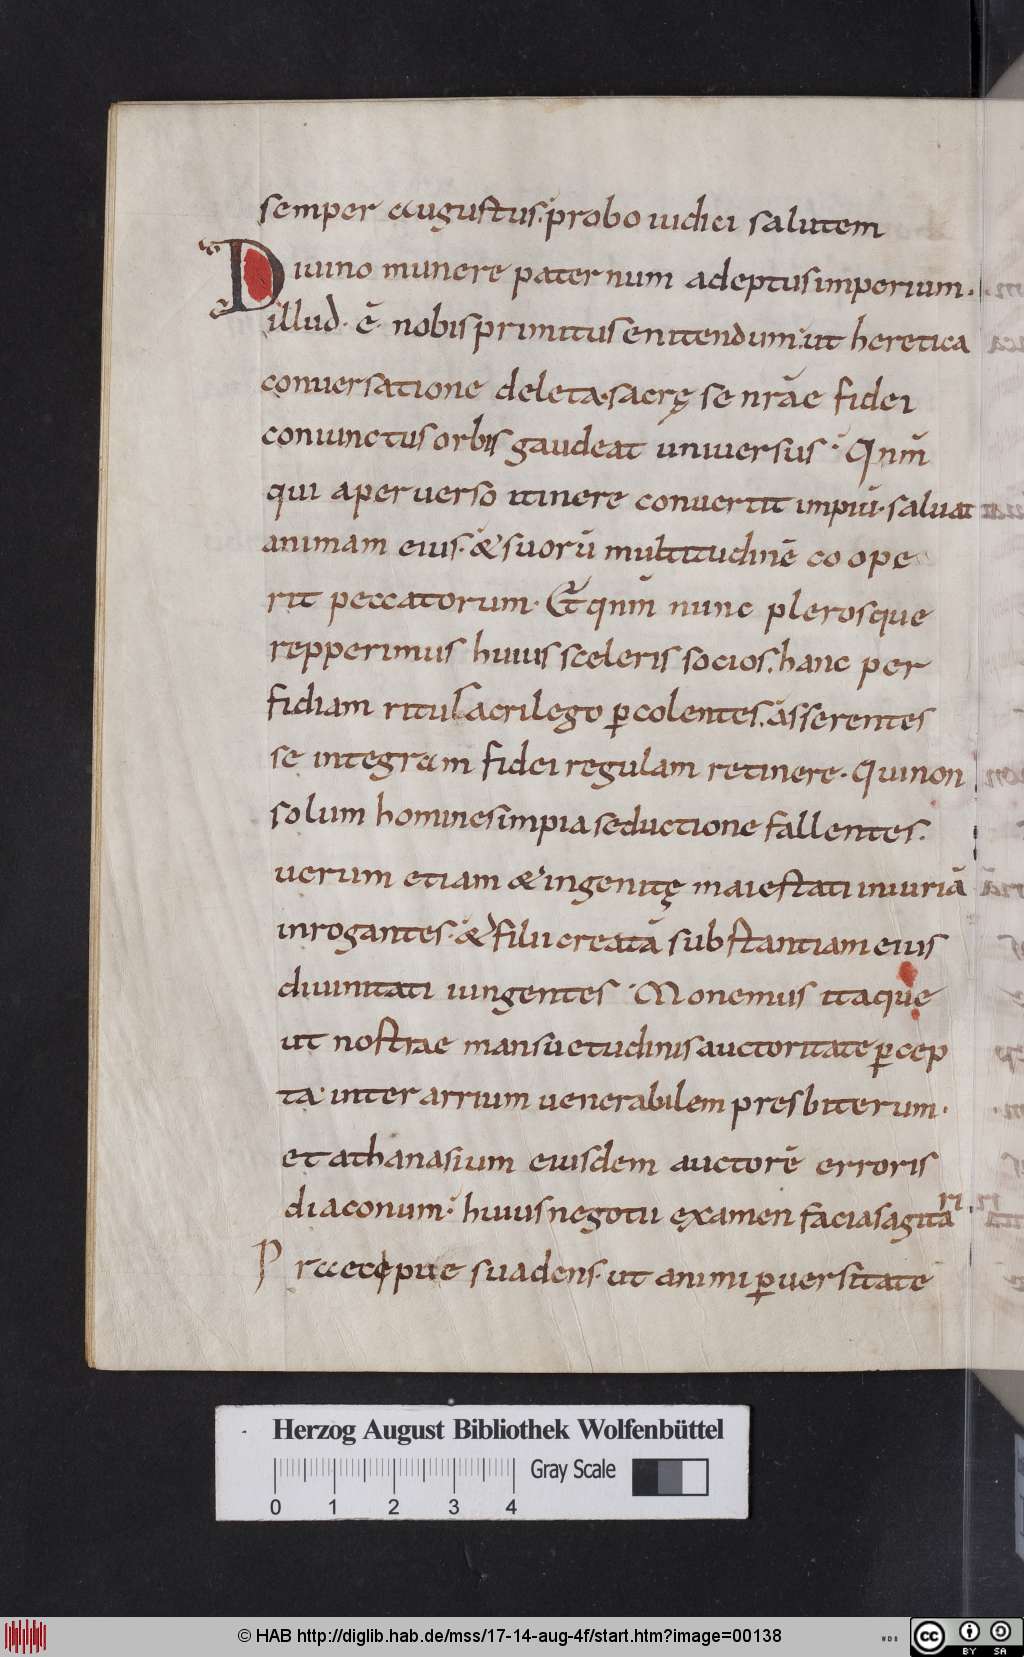 semper augustus. probo iudici salutem
Diuino munere paternum adeptus imperium.
illud. ē. nobis primitus enitendum. ut heretica
conuersatione deleta. sacrę se nrāe fidei
coniunctus orbis gaudeat uniuersus. Qnm̄
qui aperuerso itinere conuertit impiū. saluat
animam eius. & suorū multitudinē co ope
rit peccatorum. Et qnm̄ nunc plerosque
repperimus huius sceleris socios. hanc per
fidiam ritu sacrilego ꝑcolentes. asserentes
se integram fidei regulam retinere. Qui non
solum homines impia seductione fallentes.
uerum etiam & ingenitę maiestati iniuriā
inrogantes. & filii creatā substantiam eius
diuinitati iungentes. Monemus itaque
ut nostrae mansuetudinis auctoritate ꝑcep
ta. inter arrium uenerabilem presbiterum.
et athanasium eiusdem auctorē erroris
diaconum. huius negotii examen facias agitari.
Praecepue suadens. ut animi ꝑuersitate
Herzog August Bibliothek Wolfenbüttel
Gray Scale
0 1 2 3 4
© HAB http://diglib.hab.de/mss/17-14-aug-4f/start.htm?image=00138
WDB
cc BY SA